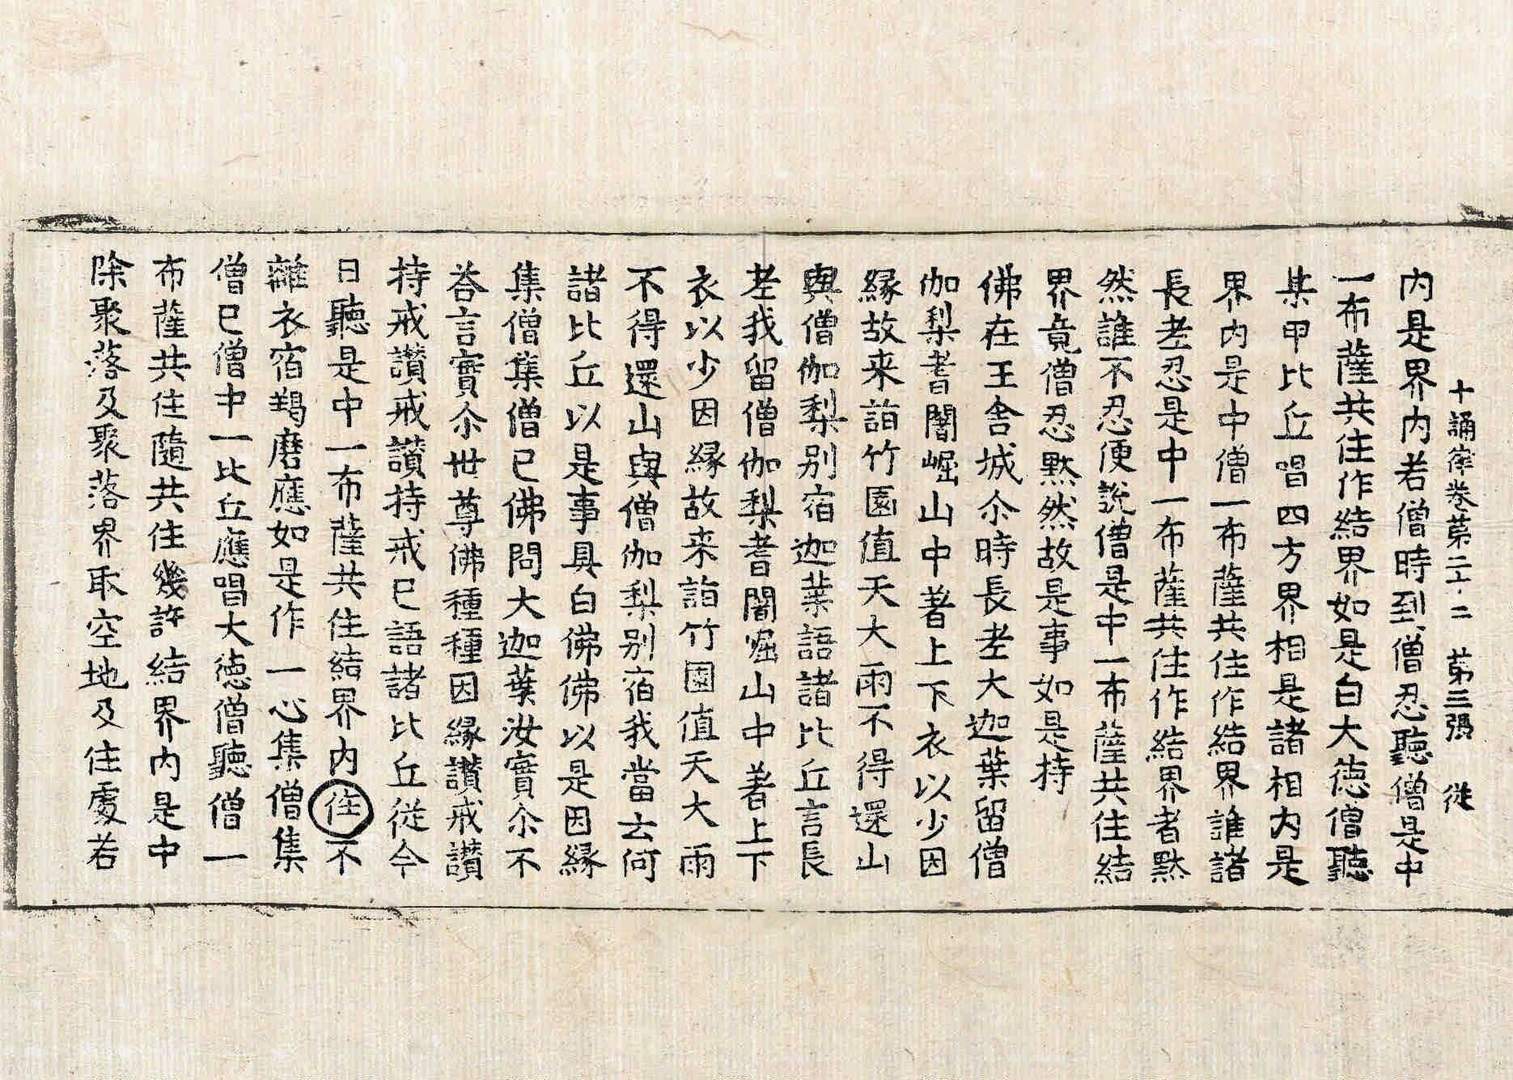 十誦律卷第二十二 第三張 従
内是界内若僧時到僧忍聽僧是中
一布薩共住作結界如是白大徳僧聽
某甲比丘唱四方界相是諸相内是
界内是中僧一布薩共住作結界誰諸
長老忍是中一布薩共住作結界者黙
然誰不忍便說僧是中一布薩共住結
界竟僧忍黙然故是事如是持
佛在王舎城尒時長老大迦葉留僧
伽梨耆闍崛山中著上下衣以少因
縁故来詣竹園值天大雨不得還山
與僧伽梨别宿迦葉語諸比丘言長
老我留僧伽梨耆闍崛山中著上下
衣以少因縁故来詣竹園值天大雨
不得還山與僧伽梨别宿我當云何
諸比丘以是事具白佛佛以是因縁
集僧集僧已佛問大迦葉汝實尒不
荅言實尒世尊佛種種因縁讃戒讃
持戒讃戒讃持戒已語諸比丘従今
日聽是中一布薩共住結界内住不
離衣宿羯磨應如是作一心集僧集
僧已僧中一比丘應唱大徳僧聽僧一
布薩共住隨共住幾許結界内是中
除聚落及聚落界取空地及住處若